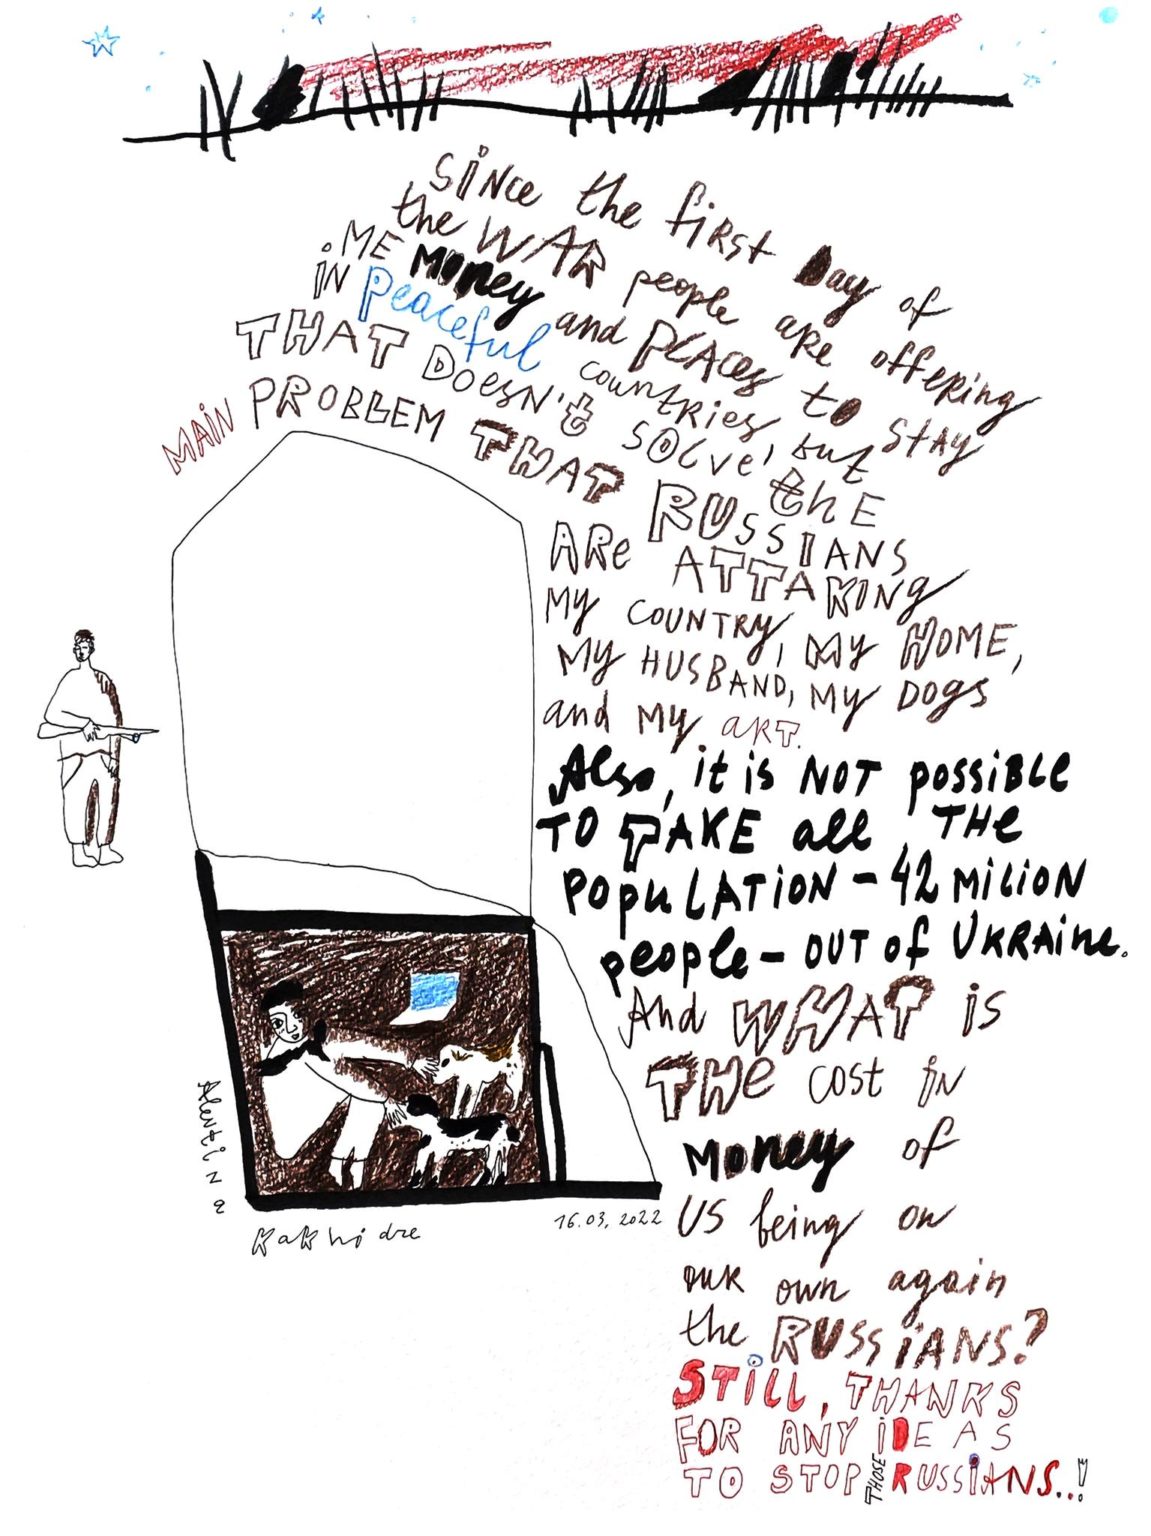 SINce the first Day of
the WAR people are offering
.ME MONey and PLACes to stay
IN peaceful countries, but
THAT DOesN't SOLve, thE
MAIN PROBLEM THAT RUSSIANS
ARe ATTAKING
MY COUNTRY, MY HOME,
MY HUSBAND, MY DOGS
and MY ART.
Also, it is NOT possiBLE
TO TAKE all THe
POPULATION – 42 MILION
people – OUT of UKRAINe.
And WHAT is
THe cost in
MONey of
US being on
OUR own again
the RUSSiANS?
STiLL, THANKS
FOR ANY iDEAS
TO STOP THOSE RUSSiANS..!
Alevtina
Kakhidze
16.03.2022